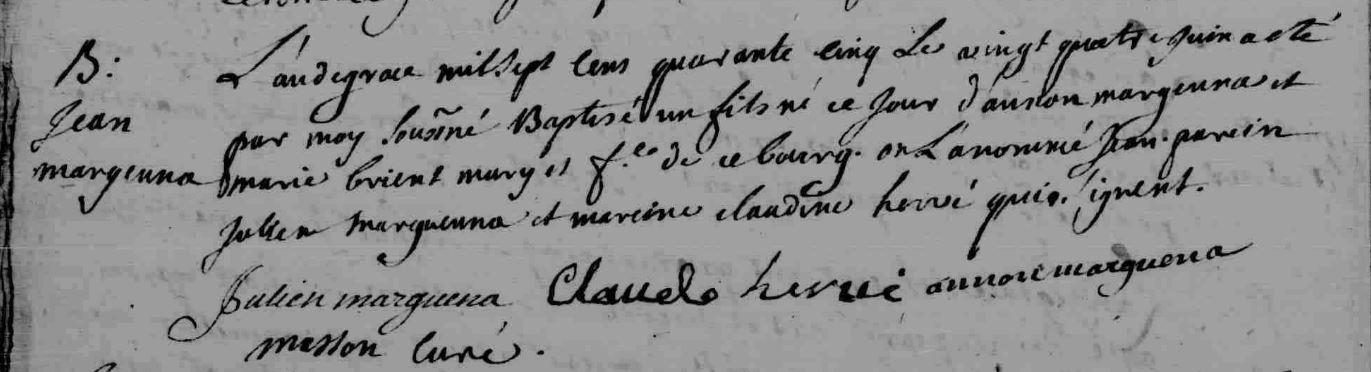 B:
Jean
margeuna
L'an de grace mil sept cens quarante cinq Le vingt quatre juin a eté
par moy Sousné Baptisé un fils né ce Jour d'annon margeuna et
marie brient mary et f.e de ce bourg. on L'a nommé Jean. parein
Julien marguenna et mareine claudine hervé qui signent.
Julien marguena Claude hervé annon marguena
masson curé.